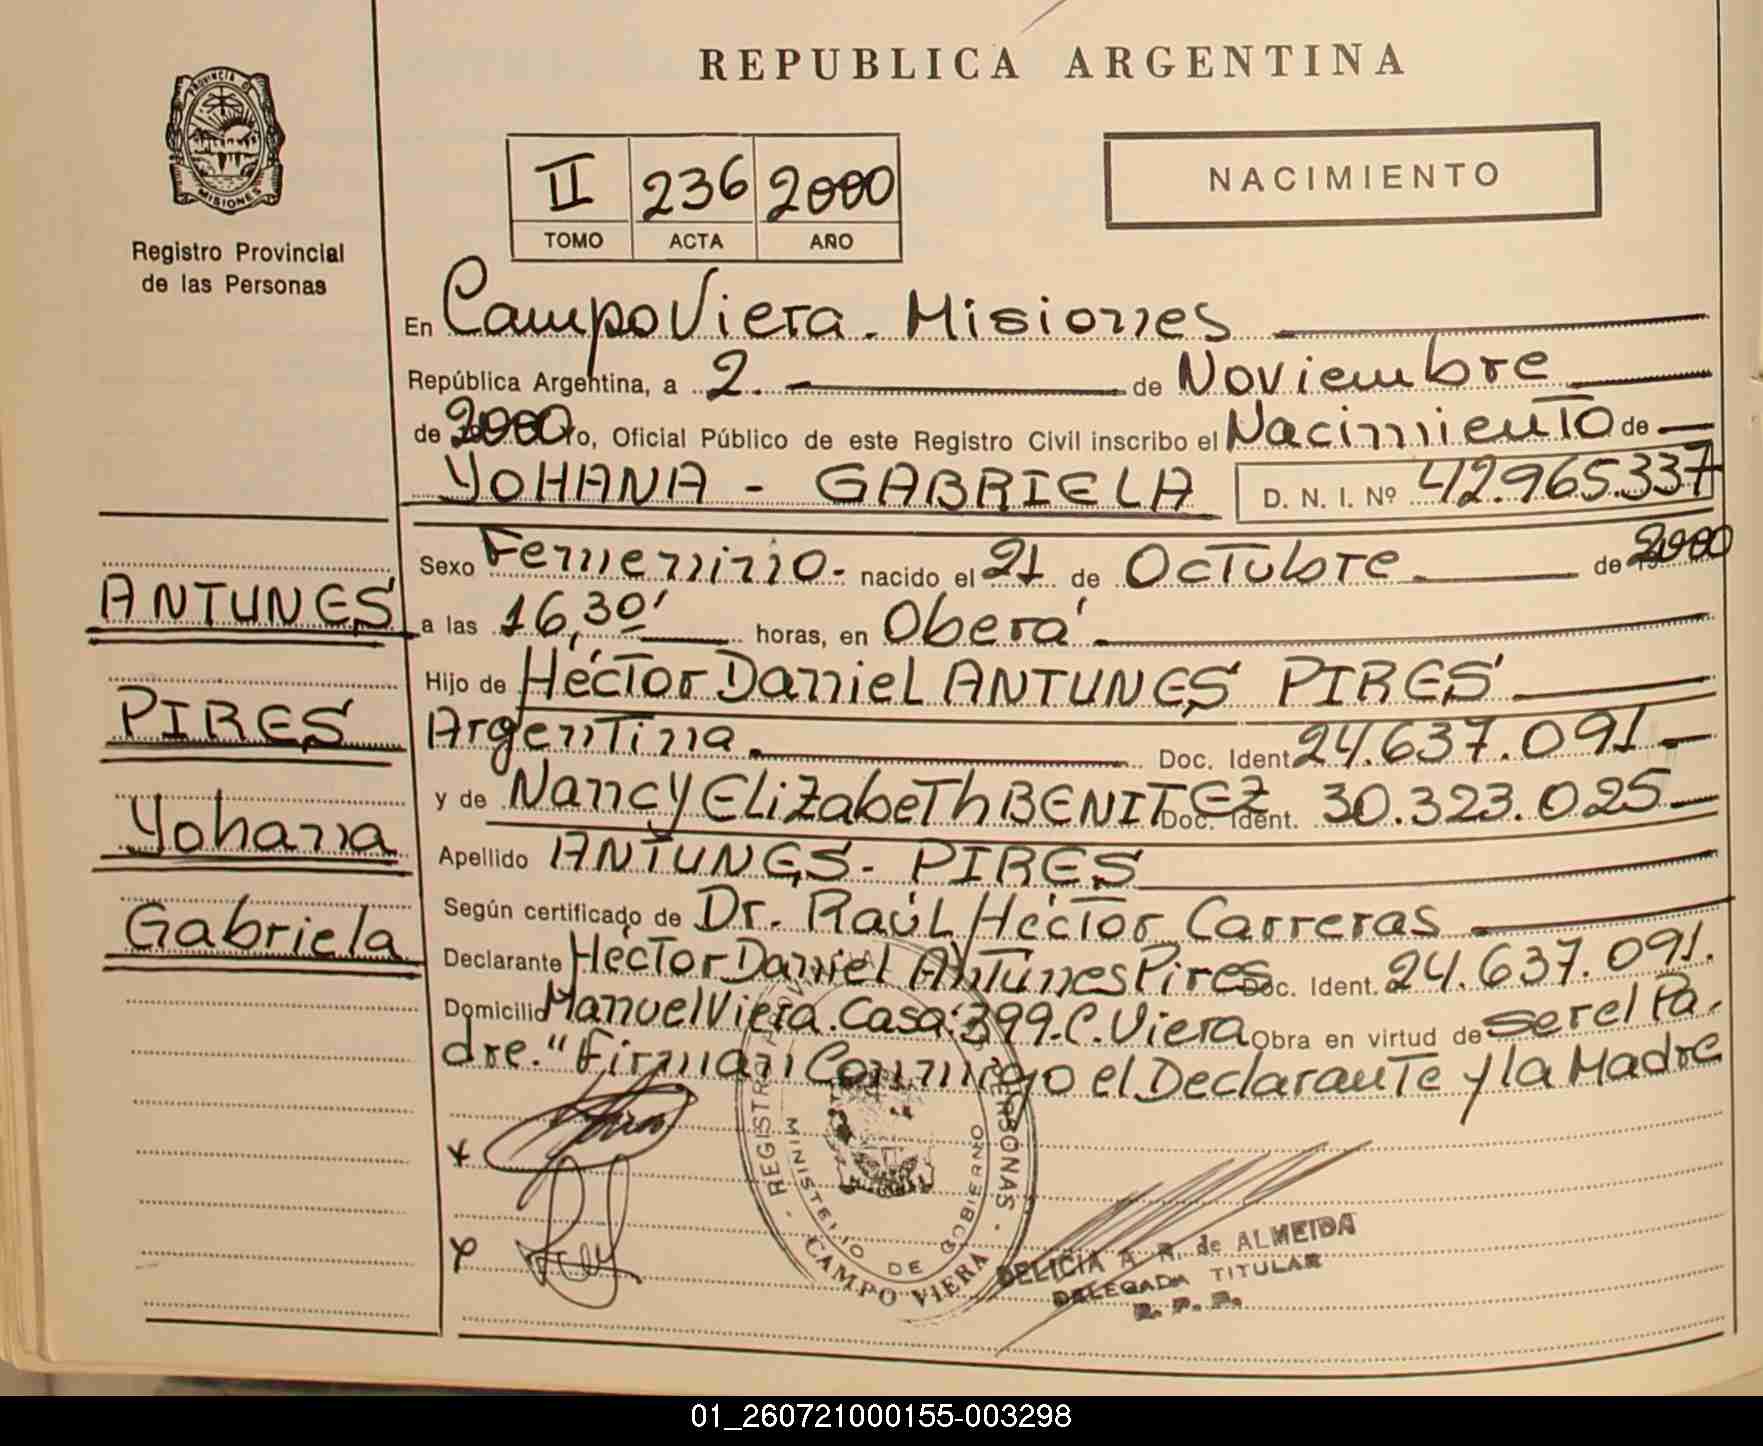 REPUBLICA ARGENTINA
PROVINCIA DE MISIONES
Registro Provincial
de las Personas
II 236 2000
TOMO ACTA AÑO
NACIMIENTO
En Campo Viera - Misiones
República Argentina, a 2 de Noviembre
de 2000 Yo, Oficial Público de este Registro Civil inscribo el Nacimiento de
YOHANA - GABRIELA D. N. I. Nº 42.965.337
Sexo Femenino - nacido el 21 de Octubre de 2000
a las 16,30' horas, en Oberá
Hijo de Héctor Daniel ANTUNES PIRES
Argentina Doc. Ident. 24.637.091
y de Nancy Elizabeth BENITEZ Doc. Ident. 30.323.025
Apellido ANTUNES - PIRES
Según certificado de Dr. Raúl Héctor Carreras
Declarante Héctor Daniel Antunes Pires Doc. Ident. 24.637.091.
Domicilio Manuel Viera. Casa: 399. C. Viera Obra en virtud de ser el Pa-
dre." Firman Conmigo el Declarante y la Madre
ANTUNES
PIRES
Yohana
Gabriela
MINISTERIO DE GOBIERNO
CAMPO VIERA
DELICIA A. R. de ALMEIDA
DELEGADA TITULAR
R. P. P.
01_260721000155-003298